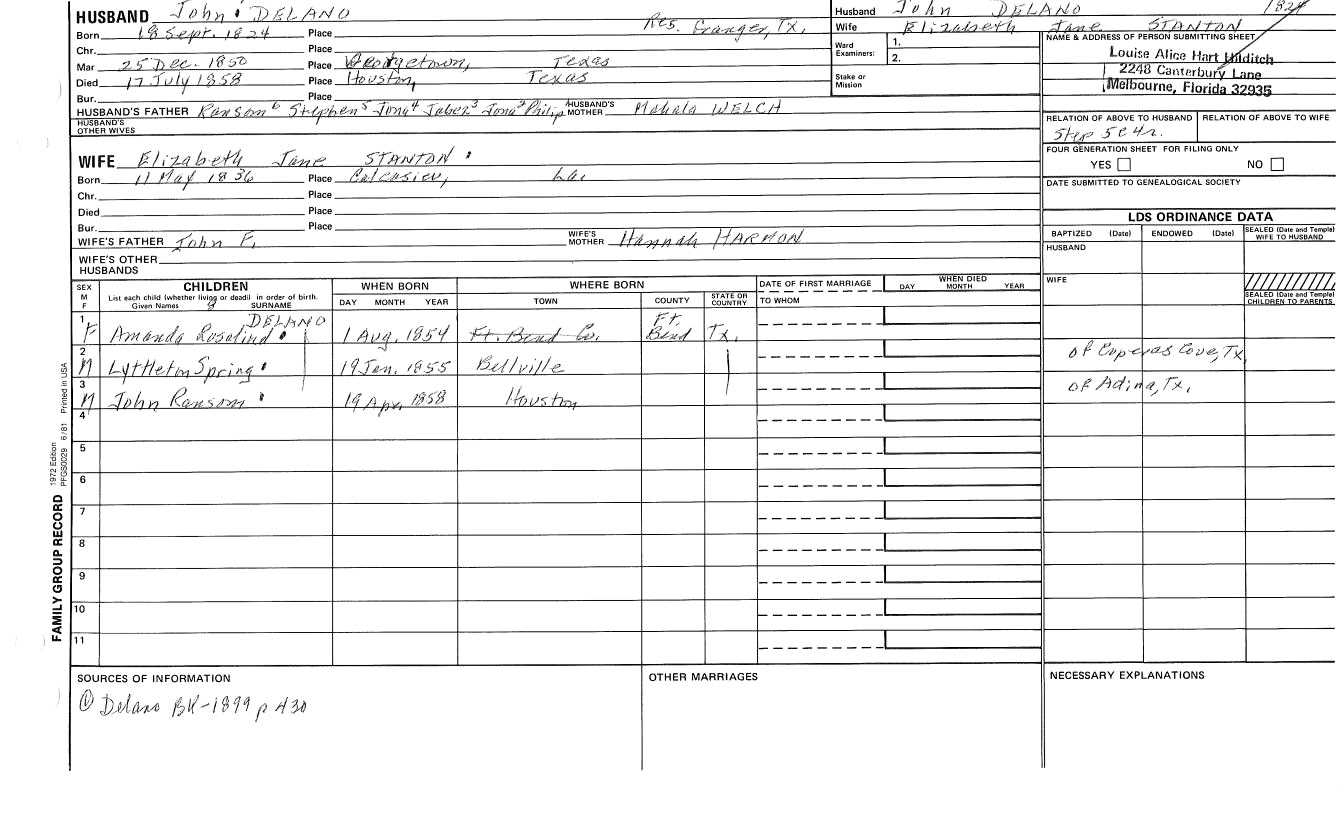 HUSBAND John DELANO
Born 18 Sept. 1824 Place Res. Granger, Tx.
Chr. Place
Mar 25 Dec. 1850 Place Georgetown, Texas
Died 17 July 1858 Place Houston, Texas
Bur. Place
HUSBAND'S FATHER Ransom⁶ Stephen⁵ Jona⁴ Jabez³ Jona² Philip HUSBAND'S MOTHER Mahala WELCH
HUSBAND'S OTHER WIVES
WIFE Elizabeth Jane STANTON
Born 11 May 1836 Place Calcasieu, La.
Chr. Place
Died Place
Bur. Place
WIFE'S FATHER John F. WIFE'S MOTHER Hannah HARMON
WIFE'S OTHER HUSBANDS
Husband John DELANO 1824
Wife Elizabeth Jane STANTON
Ward Examiners: 1.
2.
Stake or Mission
NAME & ADDRESS OF PERSON SUBMITTING SHEET
Louise Alice Hart Hilditch
2248 Canterbury Lane
Melbourne, Florida 32935
RELATION OF ABOVE TO HUSBAND RELATION OF ABOVE TO WIFE
Step 5C4r.
FOUR GENERATION SHEET FOR FILING ONLY
YES NO
DATE SUBMITTED TO GENEALOGICAL SOCIETY
LDS ORDINANCE DATA
BAPTIZED (Date) ENDOWED (Date) SEALED (Date and Temple) WIFE TO HUSBAND
HUSBAND
WIFE
SEALED (Date and Temple) CHILDREN TO PARENTS
SEX M F CHILDREN WHEN BORN WHERE BORN DATE OF FIRST MARRIAGE WHEN DIED
List each child (whether living or dead) in order of birth.
Given Names SURNAME DAY MONTH YEAR TOWN COUNTY STATE OR COUNTRY TO WHOM DAY MONTH YEAR
1 F Amanda Rosalind DELANO 1 Aug. 1854 Ft. Bend Co. Ft. Bend Tx.
2 M Lyttleton Spring 19 Jan. 1855 Bellville of Coperas Cove, Tx
3 M John Ransom 19 Apr. 1858 Houston of Adina, Tx.
4
5
6
7
8
9
10
11
FAMILY GROUP RECORD 1972 Edition PFGS0029 6/81 Printed in USA
SOURCES OF INFORMATION
① Delano BK-1899 p 430
OTHER MARRIAGES
NECESSARY EXPLANATIONS